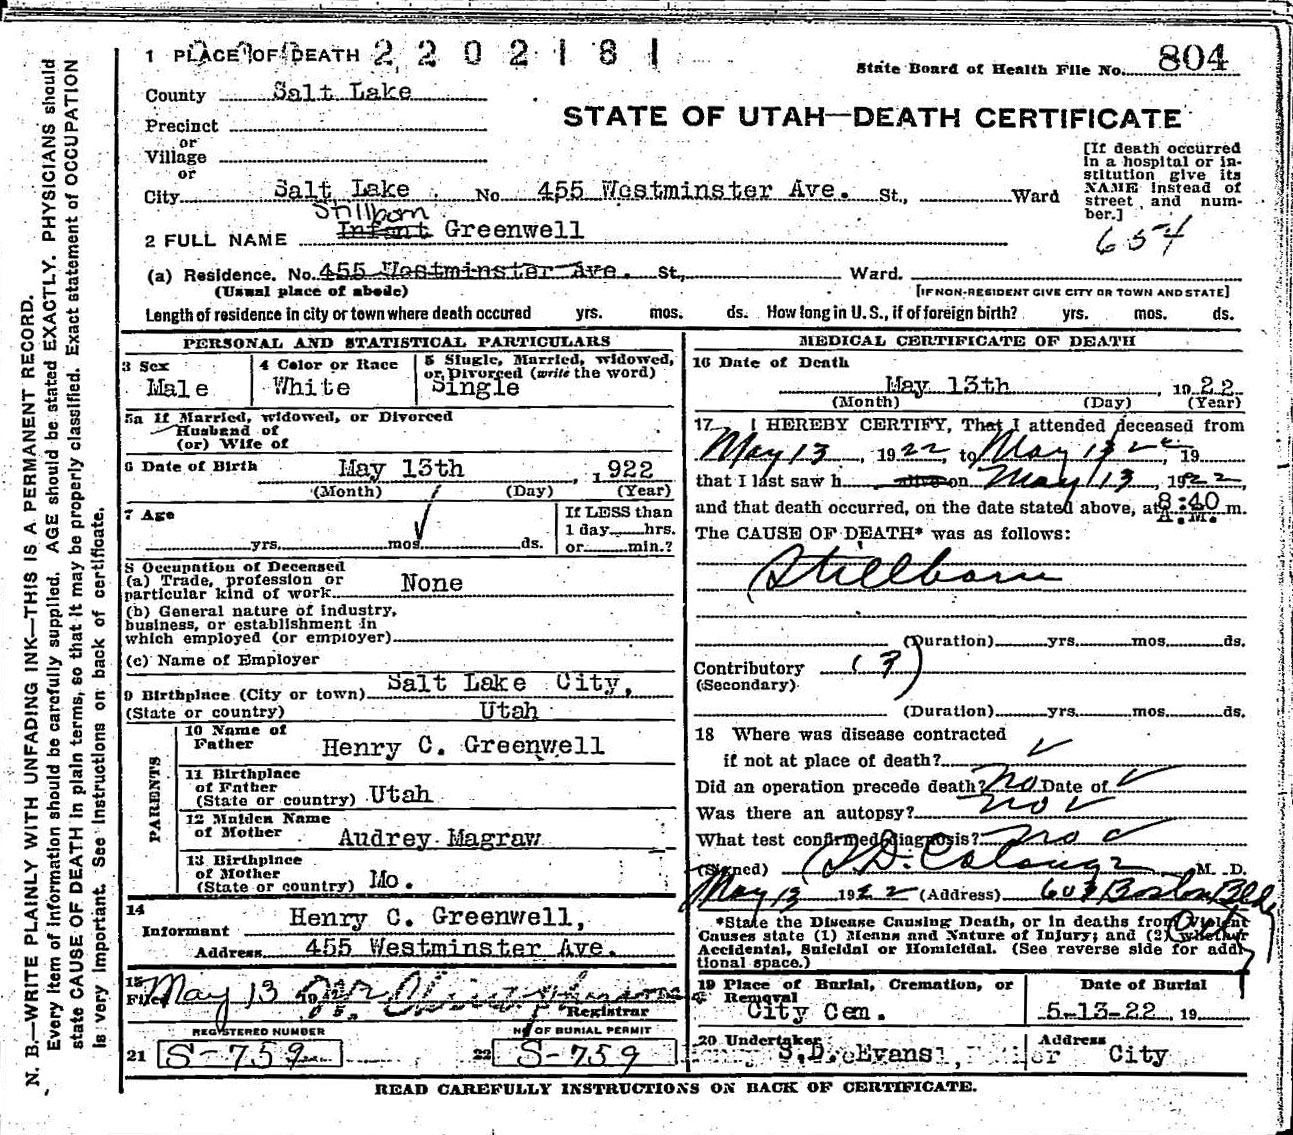 1 PLACE OF DEATH 2202181
State Board of Health File No. 804
County Salt Lake
STATE OF UTAH—DEATH CERTIFICATE
Precinct
or
Village
or
City Salt Lake No. 455 Westminster Ave. St., Ward
[If death occurred
in a hospital or in-
stitution give its
NAME instead of
street and num-
ber.]
654
Stillborn
2 FULL NAME Infant Greenwell
(a) Residence. No. 455 Westminster Ave. St., Ward.
(Usual place of abode) [IF NON-RESIDENT GIVE CITY OR TOWN AND STATE]
Length of residence in city or town where death occured yrs. mos. ds. How long in U. S., if of foreign birth? yrs. mos. ds.
PERSONAL AND STATISTICAL PARTICULARS
3 Sex 4 Color or Race 5 Single, Married, widowed,
or Divorced (write the word)
Male White Single
5a If Married, widowed, or Divorced
Husband of
(or) Wife of
6 Date of Birth May 13th, 1922
(Month) (Day) (Year)
7 Age
yrs. mos. ds.
If LESS than
1 day hrs.
or min.?
8 Occupation of Deceased
(a) Trade, profession or
particular kind of work None
(b) General nature of industry,
business, or establishment in
which employed (or employer)
(c) Name of Employer
9 Birthplace (City or town) Salt Lake City,
(State or country) Utah
PARENTS
10 Name of
Father Henry C. Greenwell
11 Birthplace
of Father
(State or country) Utah
12 Maiden Name
of Mother Audrey Magraw
13 Birthplace
of Mother
(State or country) Mo.
14
Informant Henry C. Greenwell,
Address 455 Westminster Ave.
15
Filed May 13 19
Registrar
REGISTERED NUMBER
21 S-759
No OF BURIAL PERMIT
22 S-759
MEDICAL CERTIFICATE OF DEATH
16 Date of Death
May 13th, 1922
(Month) (Day) (Year)
17 I HEREBY CERTIFY, That I attended deceased from
May 13, 1922, to May 13 22, 19
that I last saw h alive on May 13, 1922,
and that death occurred, on the date stated above, at 8:40 A.M. m.
The CAUSE OF DEATH* was as follows:
Stillborn
(Duration) yrs. mos. ds.
Contributory (?)
(Secondary)
(Duration) yrs. mos. ds.
18 Where was disease contracted
if not at place of death?
Did an operation precede death? no Date of
Was there an autopsy? no
What test confirmed diagnosis? no
(Signed) M. D.
May 13 1922 (Address) 603 Boston Bldg
City
*State the Disease Causing Death, or in deaths from Violent
Causes state (1) Means and Nature of Injury; and (2) whether
Accidental, Suicidal or Homicidal. (See reverse side for addi-
tional space.)
19 Place of Burial, Cremation, or
Removal
City Cem.
Date of Burial
5-13-22, 19
20 Undertaker S.D. Evans,
Address City
READ CAREFULLY INSTRUCTIONS ON BACK OF CERTIFICATE.
N. B.—WRITE PLAINLY WITH UNFADING INK—THIS IS A PERMANENT RECORD.
Every item of information should be carefully supplied. AGE should be stated EXACTLY. PHYSICIANS should
state CAUSE OF DEATH in plain terms, so that it may be properly classified. Exact statement of OCCUPATION
is very important. See instructions on back of certificate.